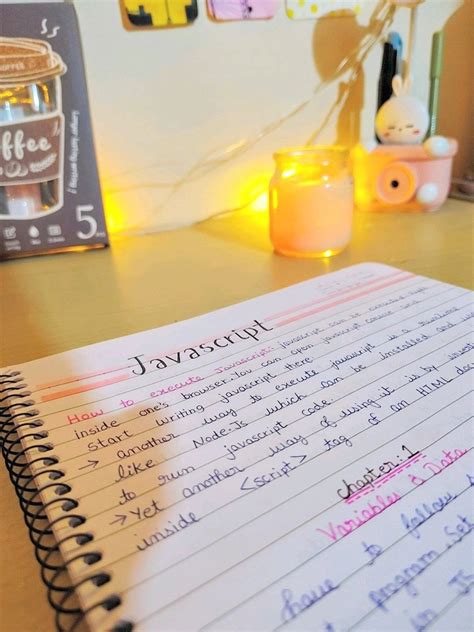 COFFEE
Coffee
Longer lasting writing
5
Javascript
How to execute Javascript: Javascript can be executed right
inside one's browser. You can open javascript console and
start writing javascript there
→ another way to execute javascript is a runtime
like Node.Js which can be installed and
to run javascript code.
→ Yet another way of using it is by
inside <script> tag of an HTML
chapter: 1
Variables & Data
have to follow
program. Set
in JS